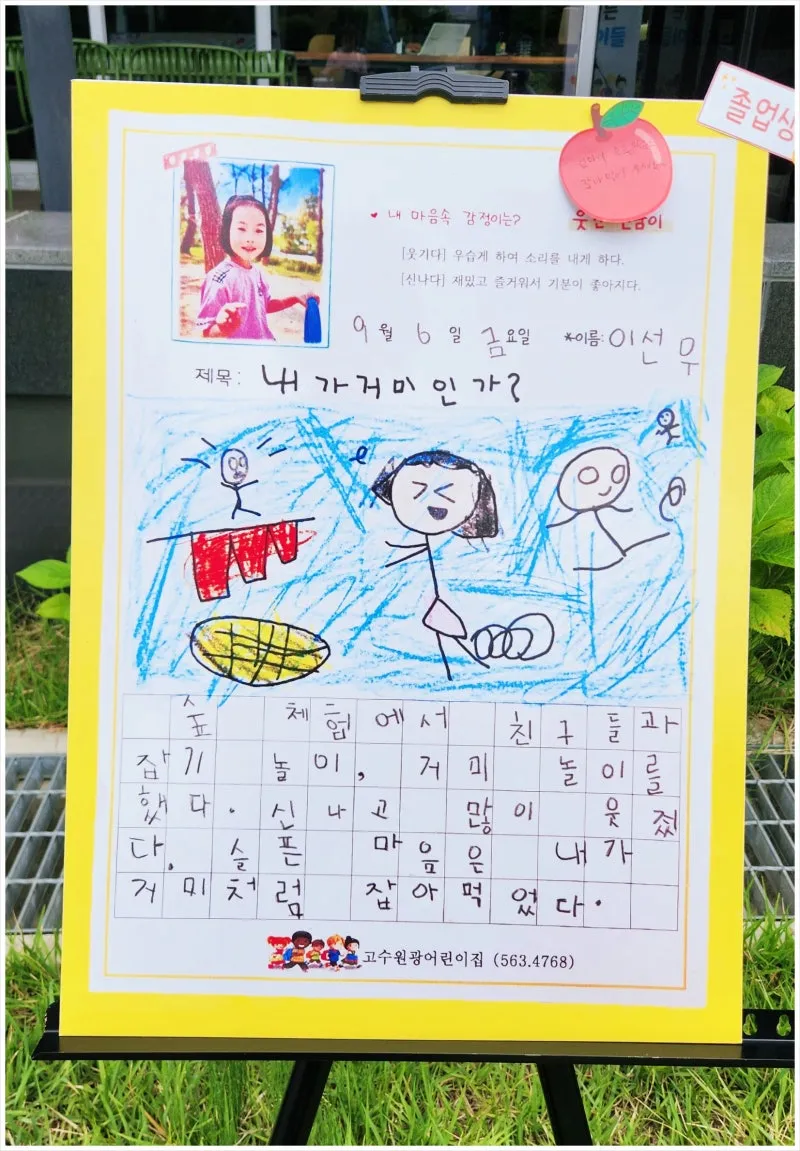 졸업
♥ 내 마음속 감정이는?
[웃기다] 우습게 하여 소리를 내게 하다.
[신나다] 재밌고 즐거워서 기분이 좋아지다.
9월 6일 금요일 *이름: 이선우
제목: 내가거미인가?
숲 체험에서 친구들과
잡기 놀이, 거미 놀이를
했다. 신나고 많이 웃졌
다. 슬픈 마음은 내가
거미처럼 잡아먹었다.
고수원광어린이집 (563.4768)